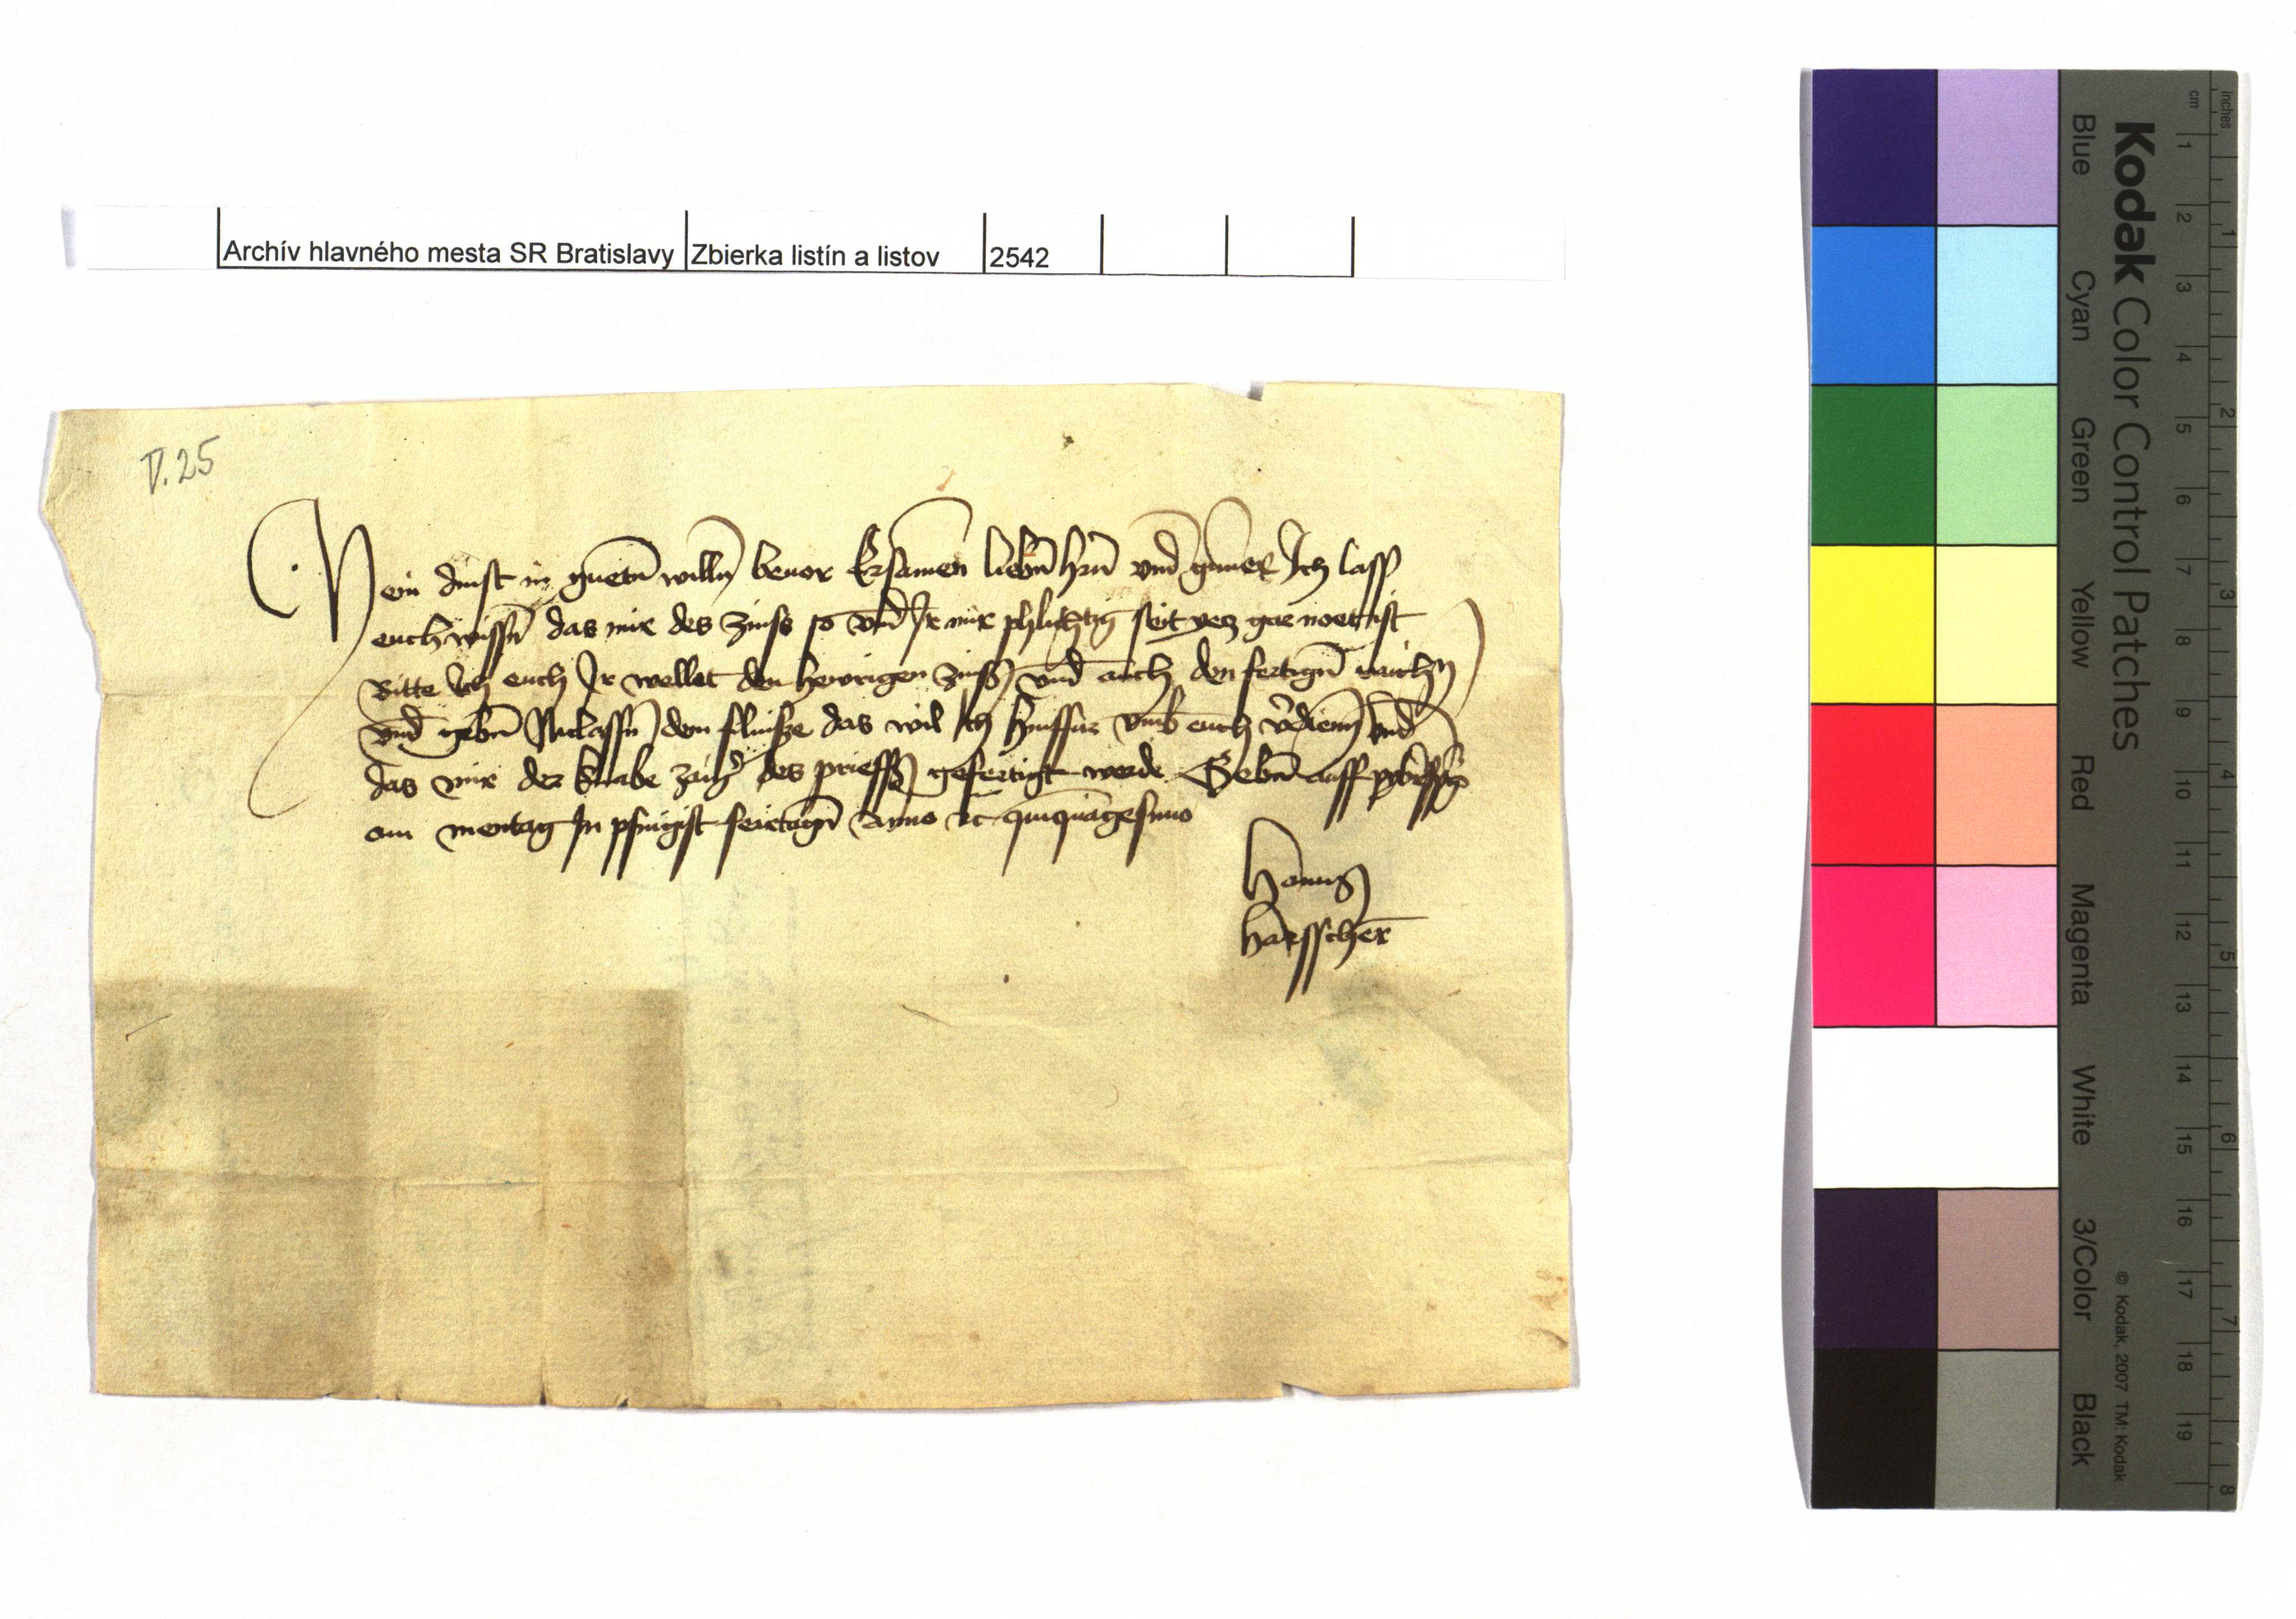 Archív hlavného mesta SR Bratislavy Zbierka listín a listov 2542
V. 25
Mein dinst in guetn̄ willn̄ beuor Ersamen liebn̄ hrn̄ vnd gunner Ich lass
euch wissn̄ das mir des zinss so Ir mir phlichtig seit yecz gar noet ist
Bitte Ich euch Ir wellet den hewrigen zinss vnd auch den fertign̄
vnd gebn̄ Niclassn̄ dem das wil Ich hinfur vmb euch v̄dienn̄ vnd
das mir der knabe des prieffs gefertigt werde Gebn̄ auff
am mentag In pfingist feirtagn̄ Anno etc quinquagesimo
Hanns
Harsscher
Kodak Color Control Patches
Blue Cyan Green Yellow Red Magenta White 3/Color Black
© Kodak, 2007 TM: Kodak
inches 1 2 3 4 5 6 7 8
cm 1 2 3 4 5 6 7 8 9 10 11 12 13 14 15 16 17 18 19